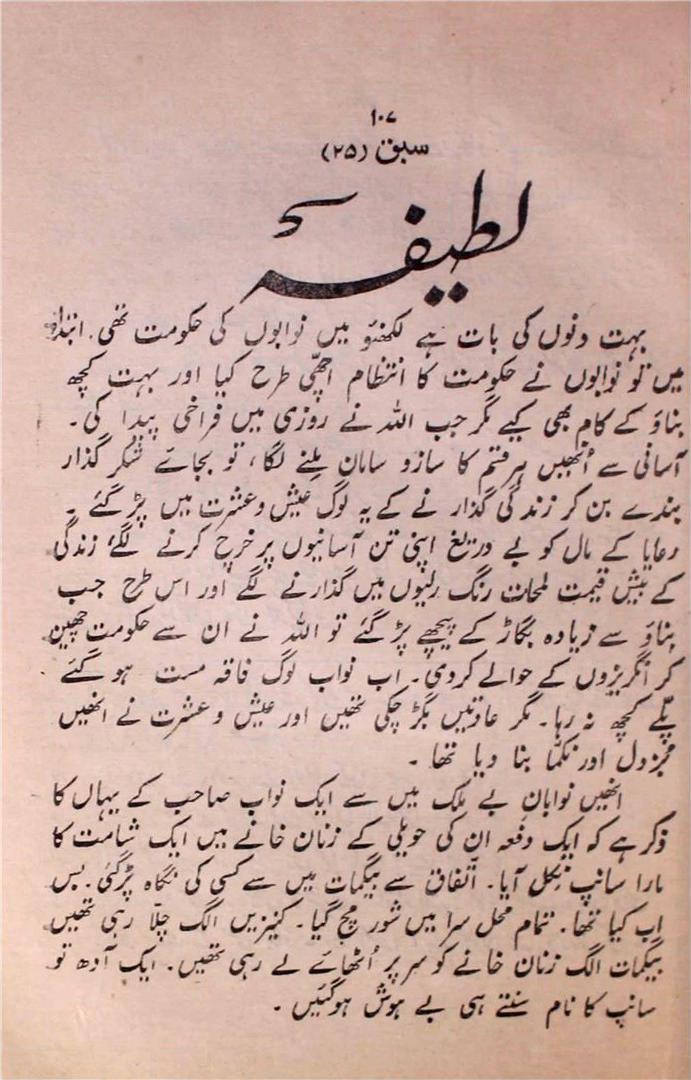 ۱۰۷
سبق (۲۵)
لطیفہٴ
بہت دنوں کی بات ہے لکھنؤ میں نوابوں کی حکومت تھی. ابتداء
میں تو نوابوں نے حکومت کا انتظام اچھّی طرح کیا اور بہت کچھ
بناؤ کے کام بھی کیے مگر جب اللہ نے روزی میں فراخی پیدا کی۔
آسانی سے اُنھیں ہر قسم کا سازو سامان مِلنے لگا، تو بجائے شکر گذار
بندے بن کر زندگی گذار نے کے یہ لوگ عیش و عشرت میں پڑ گئے ۔
رعایا کے مال کو بے دریغ اپنی تن آسانیوں پر خرچ کرنے لگے زندگی
کے بیش قیمت لمحات رنگ رلیوں میں گذارنے لگے اور اس طرح جب
بناؤ سے زیادہ بگاڑ کے پیچھے پڑ گئے تو اللہ نے ان سے حکومت چھین
کر انگریزوں کے حوالے کردی۔ اب نواب لوگ فاقہ مست ہو گئے
پلّے کچھ نہ رہا۔ مگر عادتیں بگڑ چکی تھیں اور عیش و عشرت نے انھیں
بُزدل اور نکمّا بنا دیا تھا ۔
انھیں نوابانِ بے ملک میں سے ایک نواب صاحب کے یہاں کا
ذکر ہے کہ ایک دفعہ ان کی حویلی کے زنان خانے میں ایک شامت کا
مارا سانپ نکل آیا۔ اتفاق سے بیگمات میں سے کسی کی نگاہ پڑگئی. بس
اب کیا تھا. تمام محل سرا میں شور مچ گیا۔ کنیزیں الگ چلّا رہی تھیں
بیگمات الگ زنان خانے کو سر پر اُٹھائے لے رہی تھیں. ایک آدھ تو
سانپ کا نام سنتے ہی بے ہوش ہوگئیں ۔